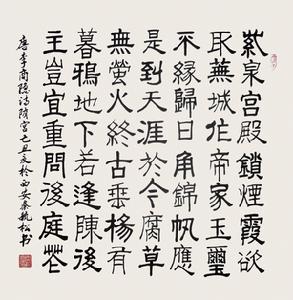 紫泉宮殿鎖煙霞欲
取蕪城作帝家玉璽
不緣歸日角錦帆應
是到天涯於今腐草
無螢火終古垂楊有
暮鴉地下若逢陳後
主豈宜重問後庭花
唐李商隱詩隋宮己丑夏於西安秦松书